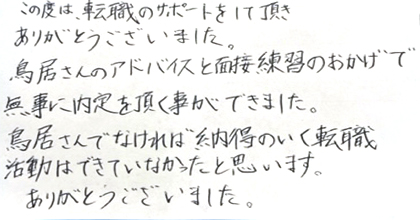 この度は、転職のサポートをして頂き
ありがとうございました。
鳥居さんのアドバイスと面接練習のおかげで
無事に内定を頂く事ができました。
鳥居さんでなければ納得のいく転職
活動はできていなかったと思います。
ありがとうございました。